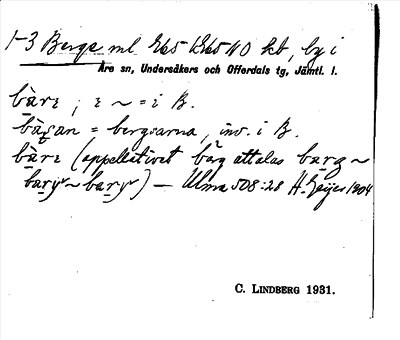 1-3 Berge ml 2/65 1/265 N 0 kb, by i
Åre sn, Undersåkers och Offerdals tg, Jämtl. l.
bàrɛ ; ɛ ~ = i B.
bàʂan = bergsarna, inv. i B.
bàrɛ (appellativet bärg uttalas barg ~
barγ ~ barγ) — Ulma 508:28 H. Geijer 1904
C. LINDBERG 1931.